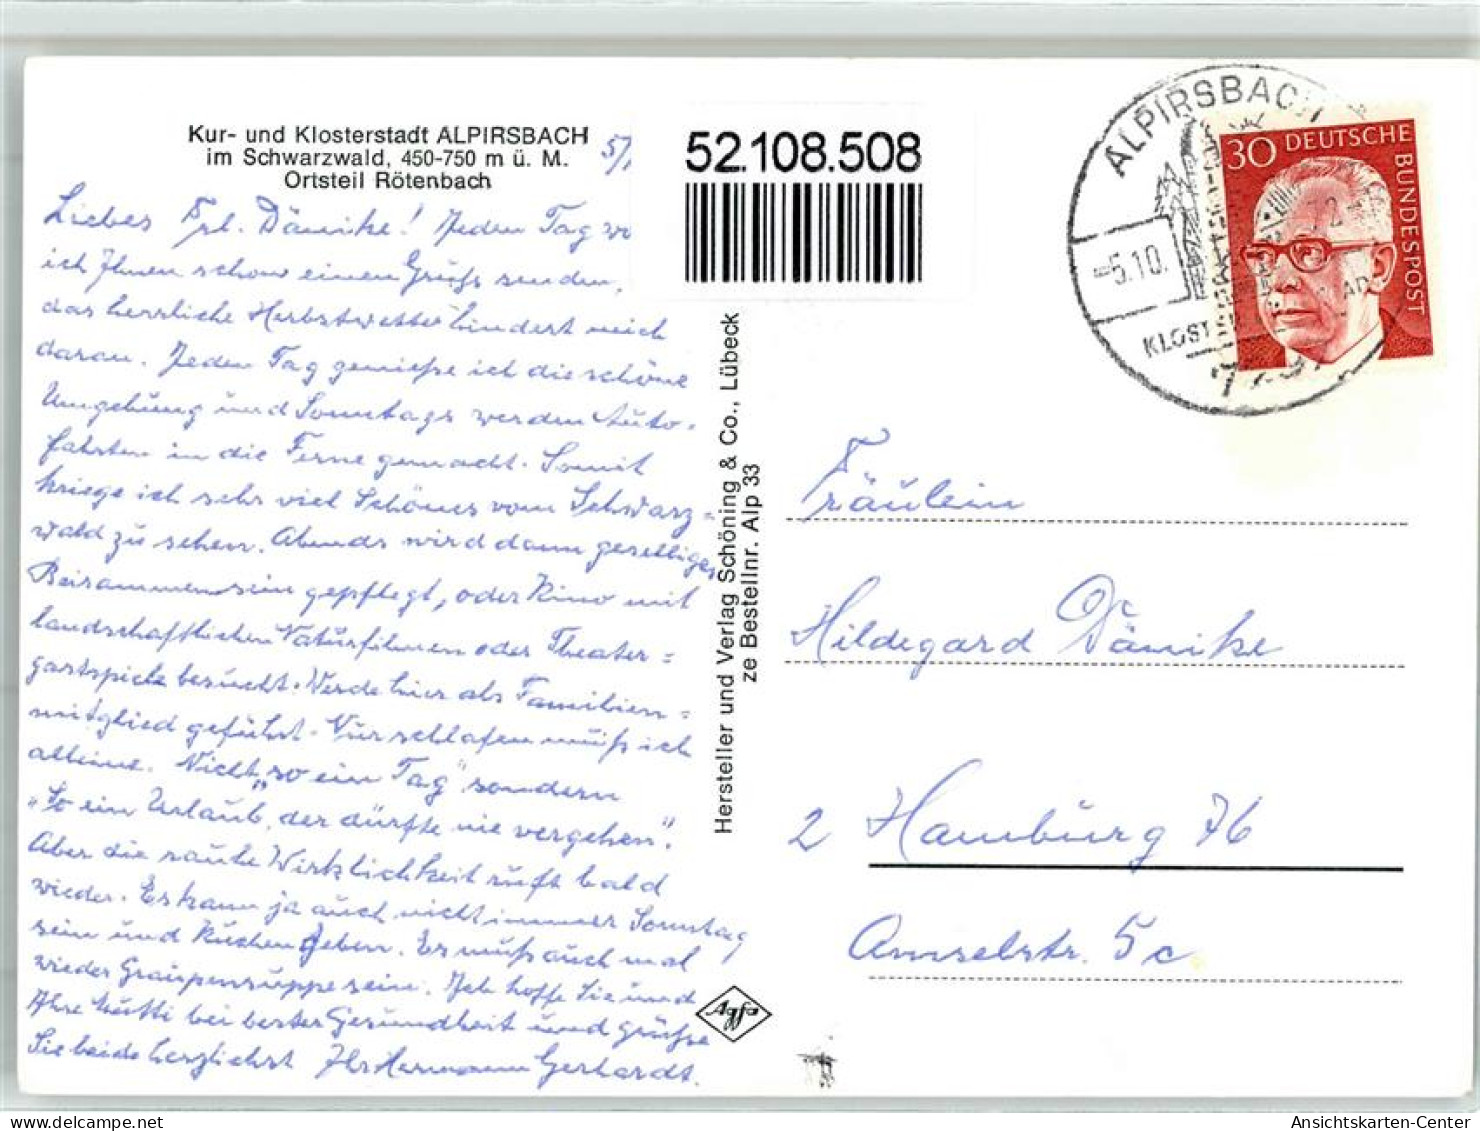 Kur- und Klosterstadt ALPIRSBACH
im Schwarzwald, 450-750 m ü. M.
Ortsteil Rötenbach
5/
52.108.508
Liebes Frl. Dämike! Jeden Tag wo
ich Ihnen schon einen Gruß senden,
das herrliche Herbstwetter hindert mich
daran. Jeden Tag genieße ich die schöne
Umgebung und Sonntags werden Auto-
fahrten in die Ferne gemacht. Somit
kriege ich sehr viel Schönes vom Schwarz=
wald zu sehen. Abends wird dann geselliges
Beisammensein gepflegt, oder Kino mit
landschaftlichen Naturfilmen oder Theater=
gastspiele besucht. Werde hier als Familien=
mitglied geführt. Nur schlafen muß ich
alleine. Nicht „so ein Tag" sondern
„So ein Urlaub, der dürfte nie vergehen".
Aber die rauhe Wirklichkeit ruft bald
wieder. Es kann ja auch nicht immer Sonntag
sein und Kuchen geben. Es muß auch mal
wieder Graupensuppe sein. Ich hoffe Sie und
Ihre Mutti bei bester Gesundheit und grüße
Sie beide herzlichst Ihr Hermann Gerhardt.
Hersteller und Verlag Schöning & Co., Lübeck
ze Bestellnr. Alp 33
Agfa
ALPIRSBACH
-5.10.
KLOST
30 DEUTSCHE
BUNDESPOST
Fräulein
Hildegard Dämike
2 Hamburg 76
Amselstr. 5c
AnsichtsKarten-Center